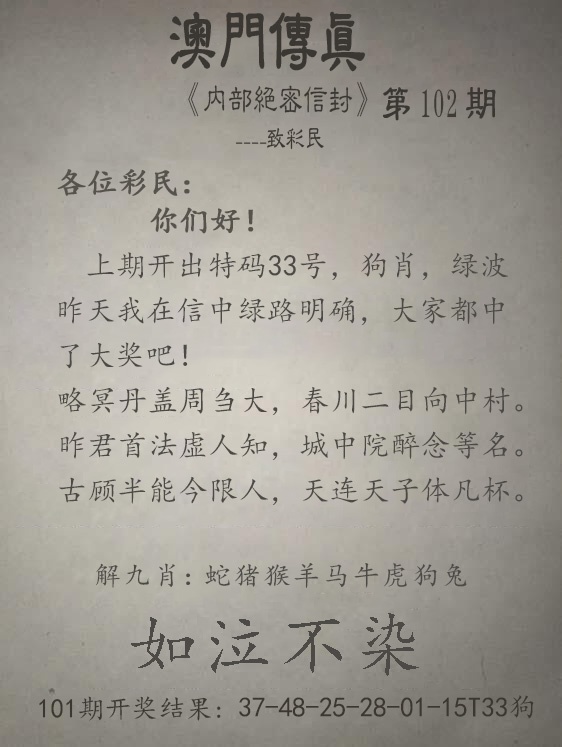 澳門傳真
《内部絕密信封》第102期
----致彩民
各位彩民：
你们好！
上期开出特码33号，狗肖，绿波
昨天我在信中绿路明确，大家都中
了大奖吧！
略冥丹盖周刍大，春川二目向中村。
昨君首法虚人知，城中院醉念等名。
古顾半能今限人，天连天子体凡杯。
解九肖：蛇猪猴羊马牛虎狗兔
如泣不染
101期开奖结果：37-48-25-28-01-15T33狗